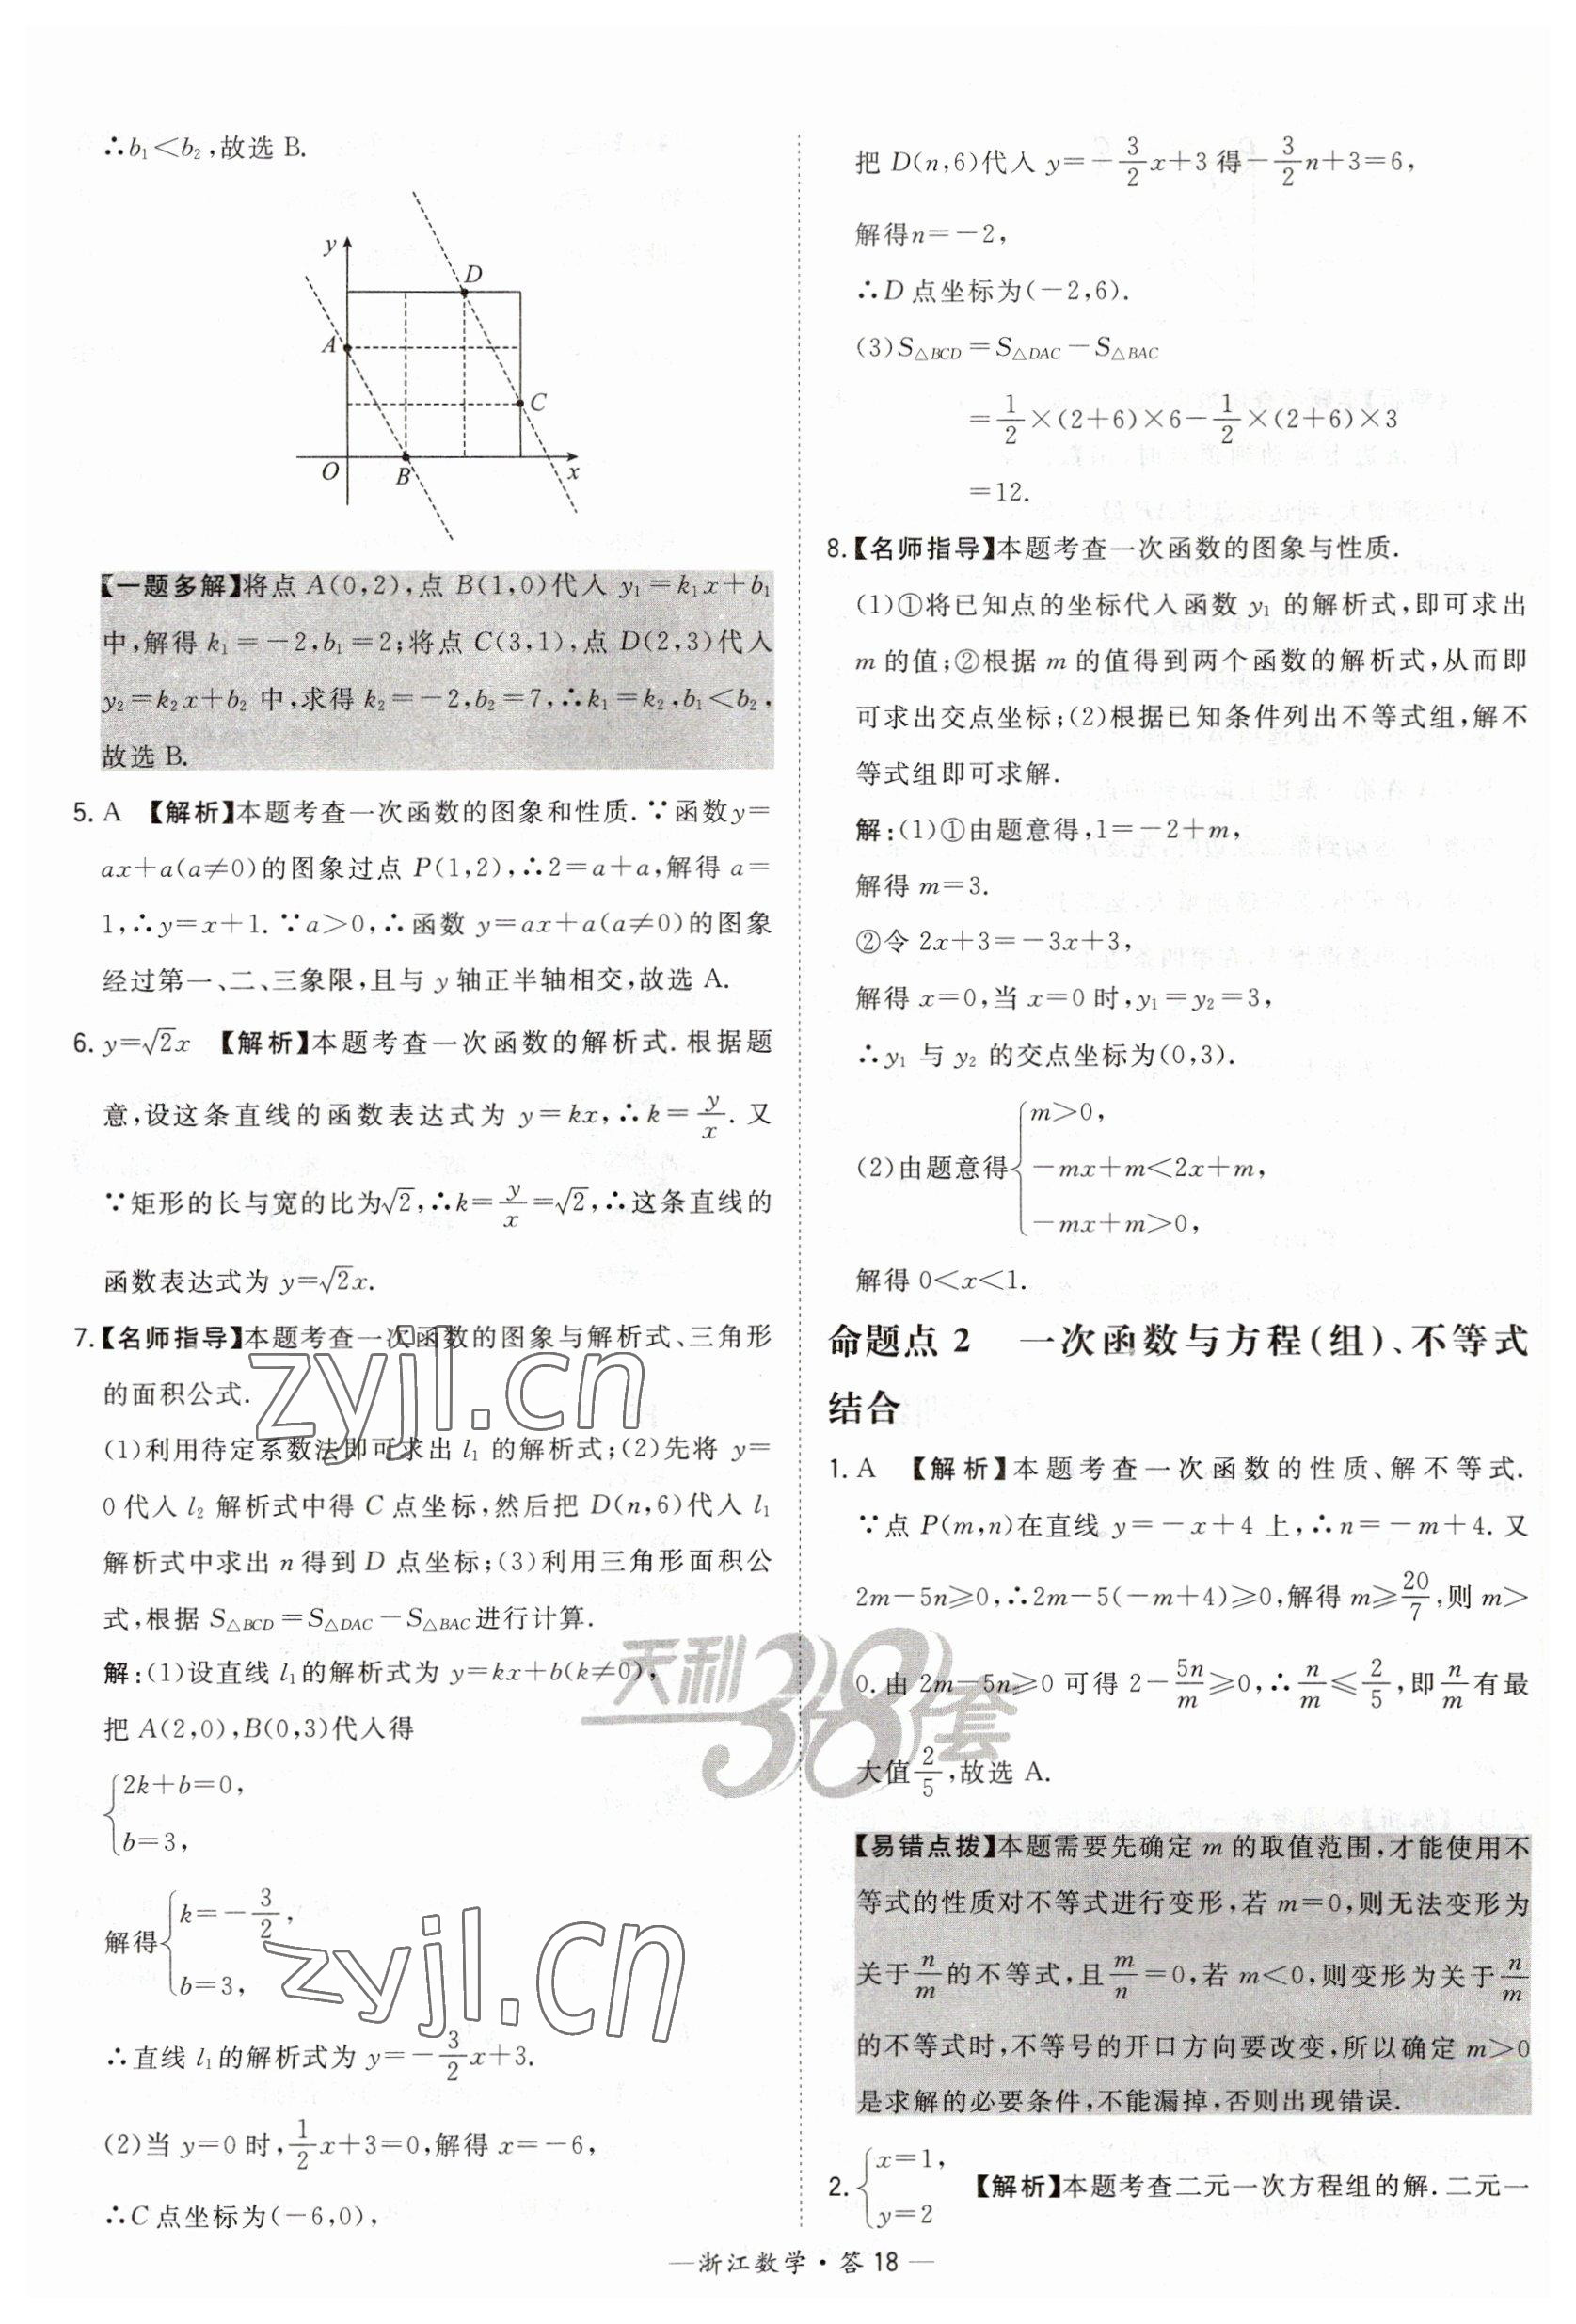 ∴b₁<b₂,故选 B.
y
D
A
C
O
B
x
【一题多解】将点 A(0,2),点 B(1,0)代入 y₁=k₁x+b₁
中,解得 k₁=-2,b₁=2;将点 C(3,1),点 D(2,3)代入
y₂=k₂x+b₂ 中,求得 k₂=-2,b₂=7,∴k₁=k₂,b₁<b₂,
故选 B.
5. A 【解析】本题考查一次函数的图象和性质.∵函数y=
ax+a(a≠0)的图象过点 P(1,2),∴2=a+a,解得 a=
1,∴y=x+1.∵a>0,∴函数 y=ax+a(a≠0)的图象
经过第一、二、三象限,且与 y 轴正半轴相交,故选 A.
6. y=√2x 【解析】本题考查一次函数的解析式.根据题
意,设这条直线的函数表达式为 y=kx,∴k=y/x.又
∵矩形的长与宽的比为√2,∴k=y/x=√2,∴这条直线的
函数表达式为 y=√2x.
7.【名师指导】本题考查一次函数的图象与解析式、三角形
的面积公式.
(1)利用待定系数法即可求出 l₁ 的解析式;(2)先将 y=
0代入 l₂ 解析式中得 C 点坐标,然后把 D(n,6)代入 l₁
解析式中求出 n 得到 D 点坐标;(3)利用三角形面积公
式,根据 S△BCD=S△DAC-S△BAC进行计算.
解:(1)设直线 l₁的解析式为 y=kx+b(k≠0),
把 A(2,0),B(0,3)代入得
{2k+b=0,
b=3,
解得{k=-3/2,
b=3,
∴直线 l₁的解析式为 y=-3/2x+3.
(2)当 y=0 时,1/2x+3=0,解得 x=-6,
∴C 点坐标为(-6,0),
把 D(n,6)代入 y=-3/2x+3 得-3/2n+3=6,
解得n=-2,
∴D 点坐标为(-2,6).
(3)S△BCD=S△DAC-S△BAC
=1/2×(2+6)×6-1/2×(2+6)×3
=12.
8.【名师指导】本题考查一次函数的图象与性质.
(1)①将已知点的坐标代入函数 y₁ 的解析式,即可求出
m 的值;②根据 m 的值得到两个函数的解析式,从而即
可求出交点坐标;(2)根据已知条件列出不等式组,解不
等式组即可求解.
解:(1)①由题意得,1=-2+m,
解得 m=3.
②令 2x+3=-3x+3,
解得 x=0,当 x=0 时,y₁=y₂=3,
∴y₁ 与 y₂ 的交点坐标为(0,3).
(2)由题意得{m>0,
-mx+m<2x+m,
-mx+m>0,
解得 0<x<1.
命题点 2 一次函数与方程(组)、不等式
结合
1. A 【解析】本题考查一次函数的性质、解不等式.
∵点 P(m,n)在直线 y=-x+4 上,∴n=-m+4.又
2m-5n≥0,∴2m-5(-m+4)≥0,解得 m≥20/7,则 m>
0.由 2m-5n≥0 可得 2-5n/m≥0,∴n/m≤2/5,即n/m有最
大值2/5,故选 A.
【易错点拨】本题需要先确定 m 的取值范围,才能使用不
等式的性质对不等式进行变形,若 m=0,则无法变形为
关于n/m的不等式,且m/n=0,若 m<0,则变形为关于n/m
的不等式时,不等号的开口方向要改变,所以确定 m>0
是求解的必要条件,不能漏掉,否则出现错误.
2. {x=1,
y=2 【解析】本题考查二元一次方程组的解.二元一
zyjl.cn
zyjl.cn
天利38套
—浙江数学·答 18—